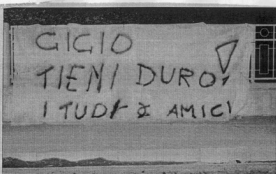 GIGIO
TIENI DURO!
I TUOI AMICI